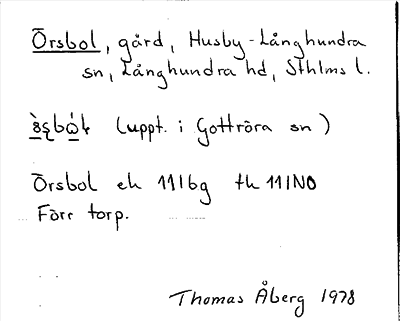 Örsbol, gård, Husby-Långhundra
sn, Långhundra hd, Sthlms l.
(uppt. i Gottröra sn)
Örsbol ek 11I6g th 11INO
Förr torp.
Thomas Åberg 1978